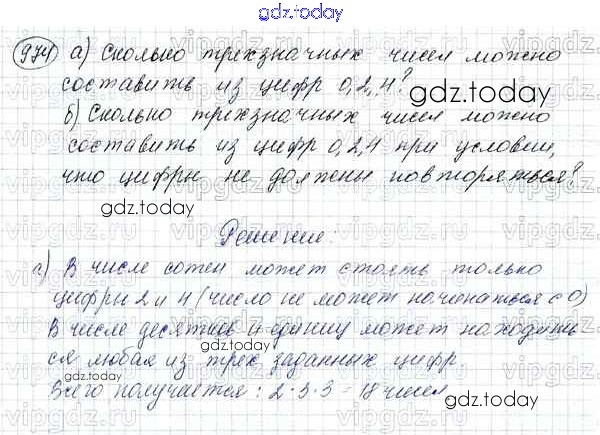 gdz.today
974) а) Сколько трехзначных чисел можно
составить из цифр 0,2,4?
gdz.today
б) Сколько трехзначных чисел можно
составить из цифр 0,2,4 при условии,
что цифры не должны повторяться?
gdz.today
Решение.
а) В числе сотен может стоять только
цифры 2 и 4 (число не может начинаться с 0)
В числе десятков и единиц может находить
ся любая из трех заданных цифр
Всего получается: 2·3·3 = 18 чисел
gdz.today
gdz.today